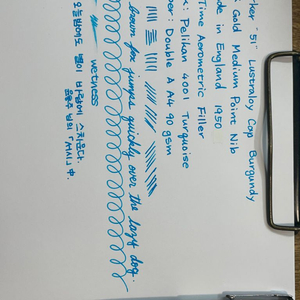 ker "51" Lustraloy Cap Burgundy
Gold Medium Point Nib
de in England 1950
Time Aerometric Filler
: Pelikan 4001 Turquoise
er: Double A A4 90 gsm
brown fox jumps quickly over the lazy dog.
wetness
오늘밤에도 별이 바람에 스치운다.
님의 「서시」 中